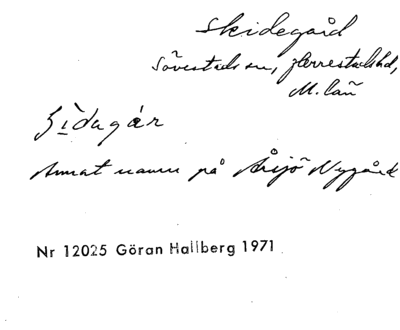 Skidegård
Sövestads sn, Herrestads hd,
M. län
Annat namn på Årsjö Nygård
Nr 12025 Göran Hallberg 1971